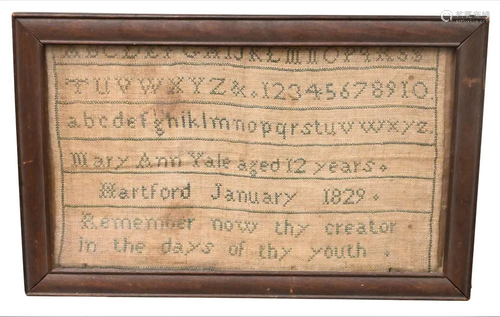 ABCDEFGHIJKLMNOPQRSS
TUVWXYZ&.12345678910.
abcdefghiklmnopqrstuvwxyz.
Mary Ann Yale aged 12 years.
Hartford January 1829.
Remember now thy creator
in the days of thy youth.